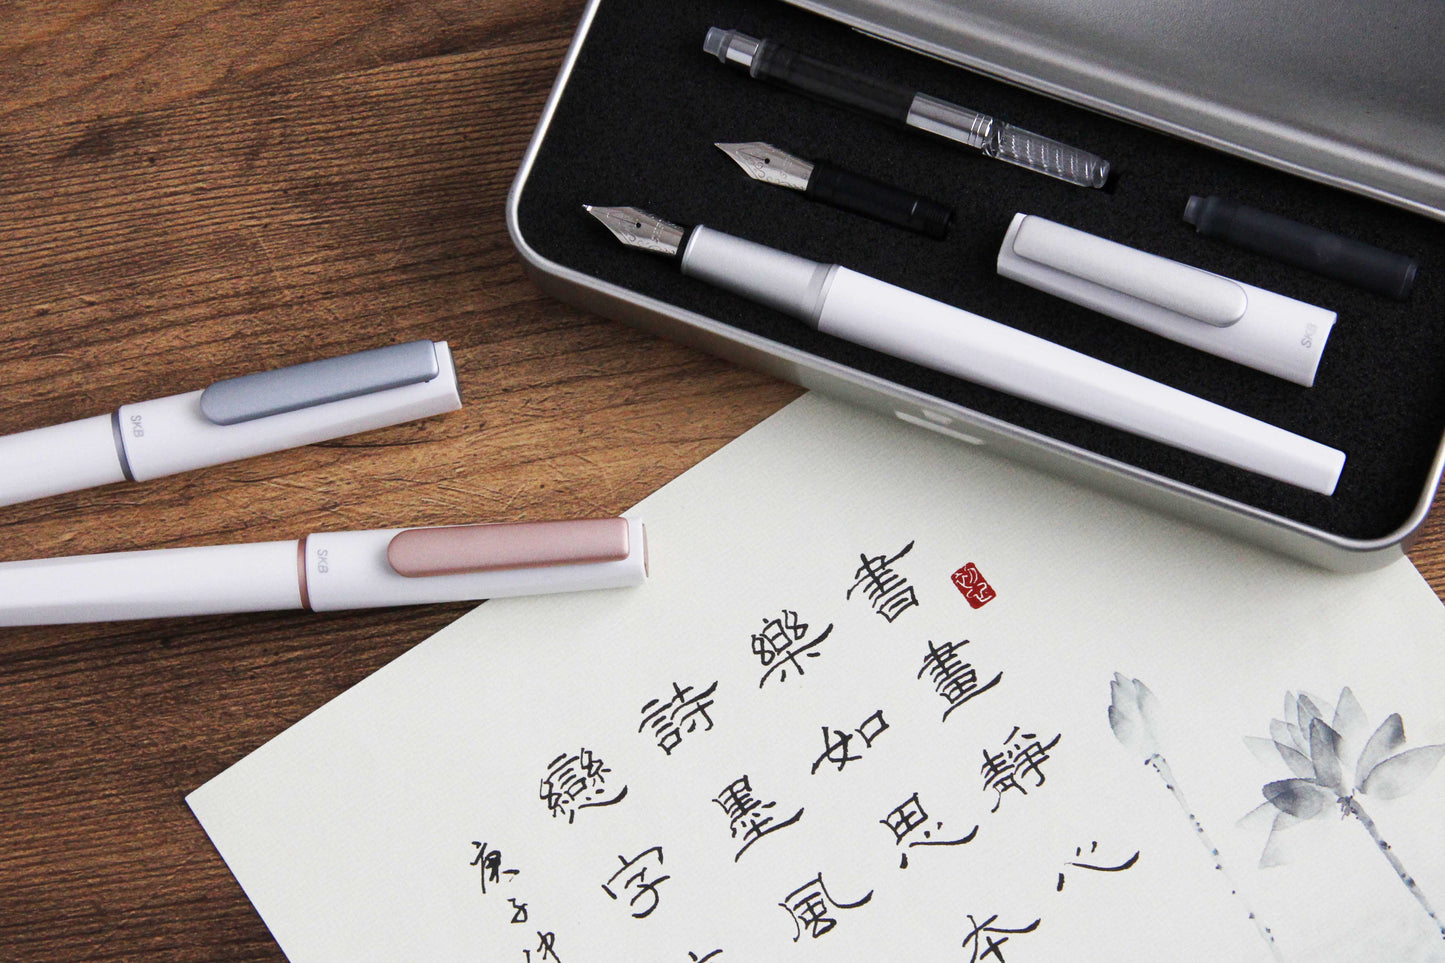 書畫靜心
樂如思本
詩墨風
戀字
庚子仲
SKB
SKB
SKB